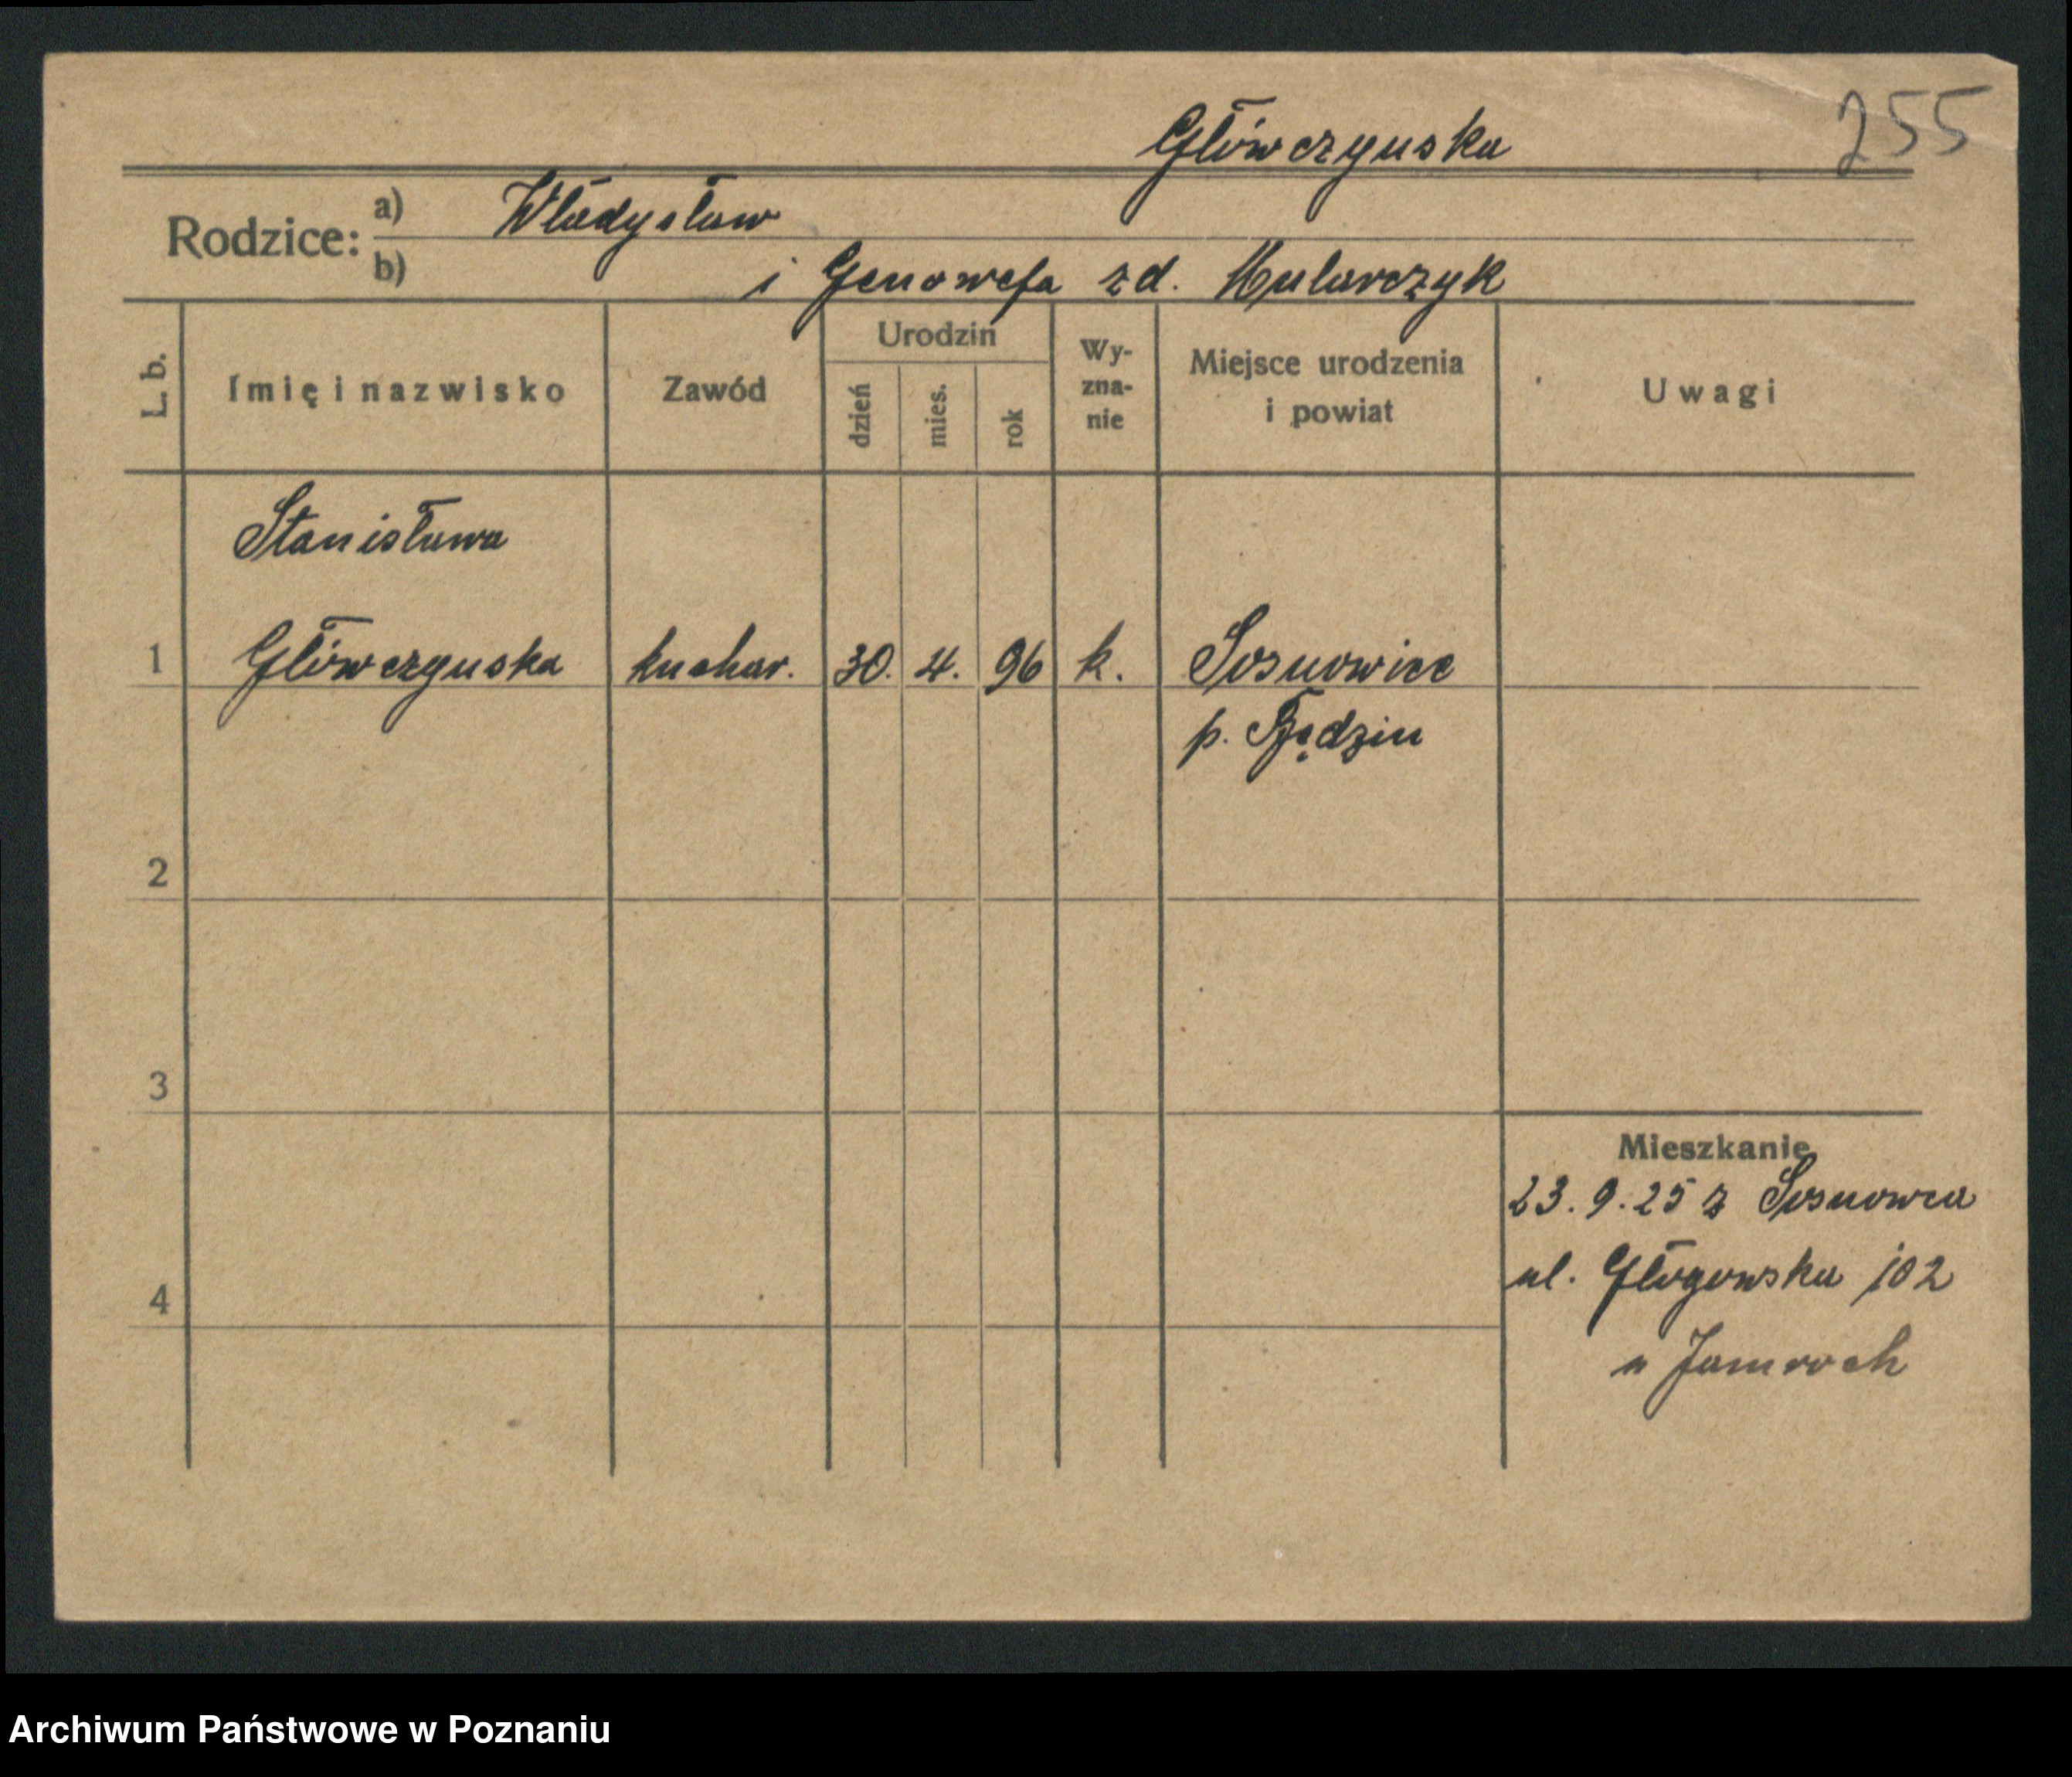 255
Główczynska
Rodzice: a) Władysław
b) i Genowefa zd. Mularczyk
L. b. Imię i nazwisko Zawód Urodzin dzień mies. rok Wyznanie Miejsce urodzenia i powiat Uwagi
Stanisława
1 Główczynska kuchar. 30. 4. 96 k. Sosnowiec
p. Będzin
2
3
Mieszkanie
23. 9. 25 z Sosnowca
ul. Głogowska 102
4
u Jamroch
Archiwum Państwowe w Poznaniu